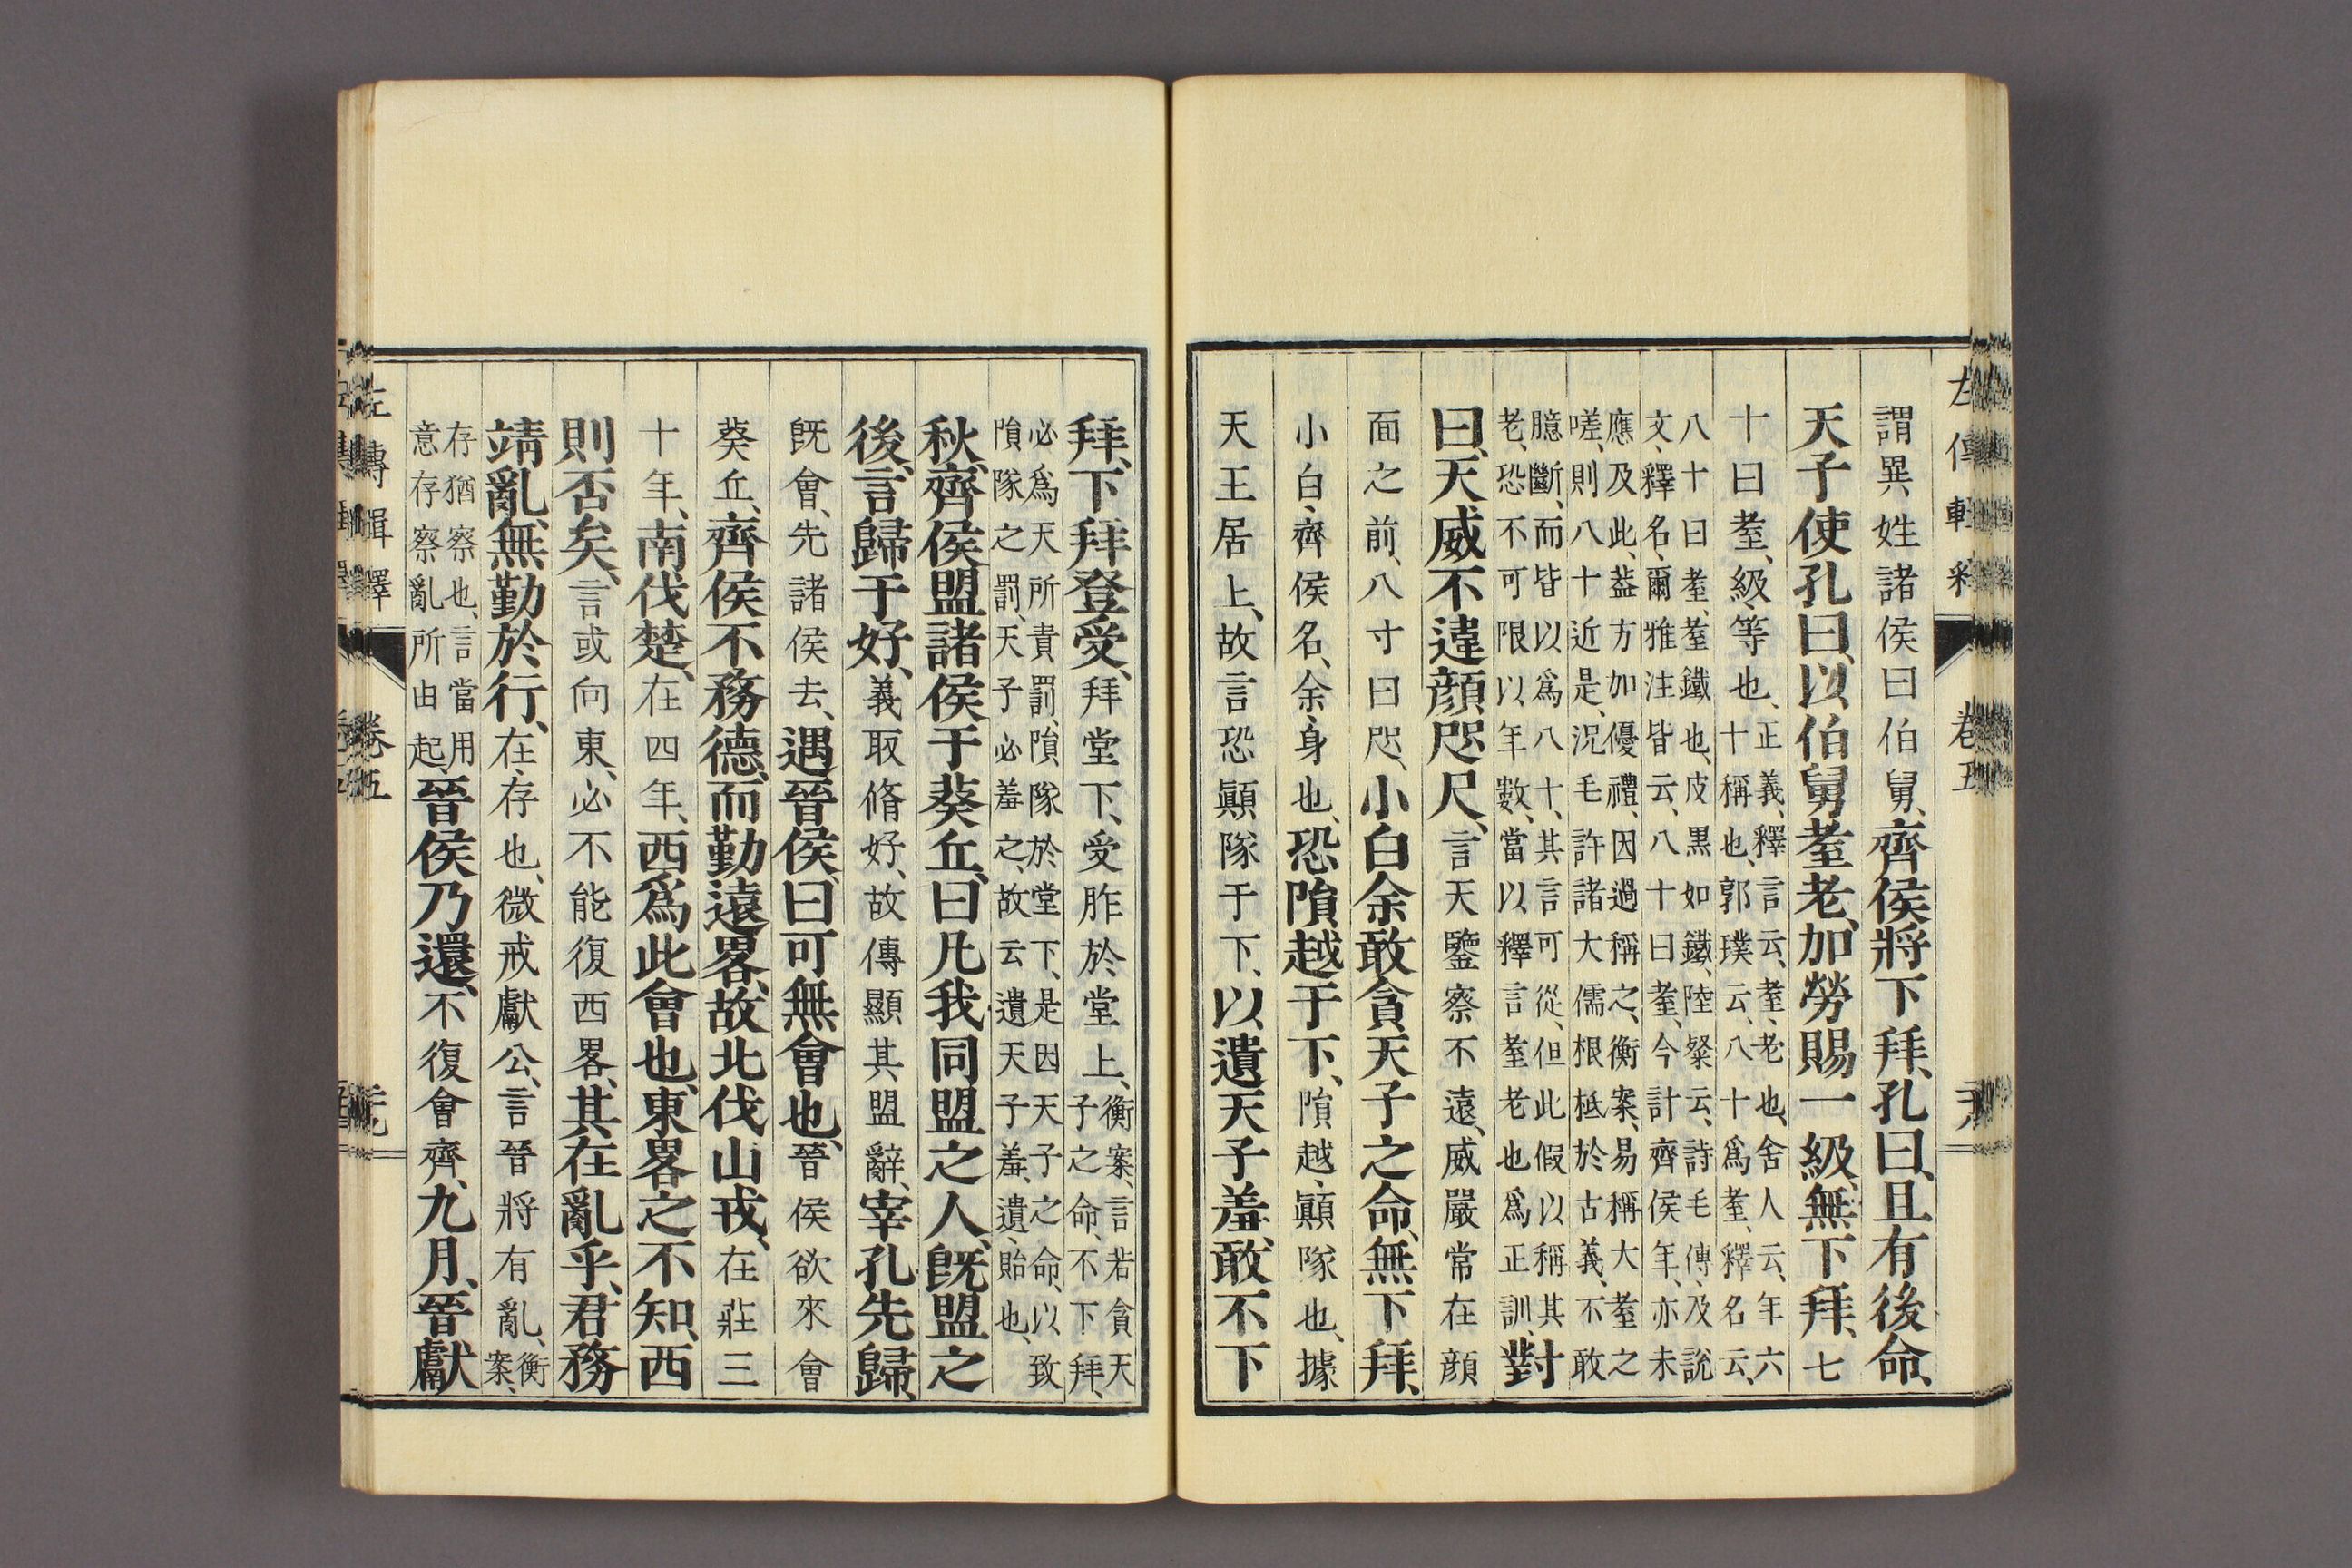 左傳輯釋 卷五
謂異姓諸侯曰伯舅、齊侯將下拜、孔曰、且有後命、
天子使孔曰、以伯舅耋老、加勞賜一級、無下拜、七
十曰耋、級、等也、正義、釋言云、耋、老也、舍人云、年六
十稱也、郭璞云、八十爲耋、釋名云、
八十曰耋、耋鐵也、皮黒如鐵、陸粲云、詩毛傳、及說
文、釋名、爾雅注皆云、八十曰耋、今計齊侯年、亦未
應及此、葢方加優禮、因過稱之、衡案、易稱大耋之
嗟、則八十近是、況毛許諸大儒根柢於古義、不敢
臆斷、而皆以爲八十、其言可從、但此假以稱其
老、恐不可限以年數、當以釋言耋老也爲正訓、對
曰、天威不違顔咫尺、言天鑒察不遠、威嚴常在顔
面之前、八寸曰咫、小白余敢貪天子之命、無下拜、
小白、齊侯名、余、身也、恐隕越于下、隕越、顚隊也、據
天王居上、故言恐顚隊于下、以遺天子羞、敢不下
拜、下拜登受、拜堂下、受胙於堂上、衡案、言若貪天
子之命、不下拜、
必爲天所責罰、隕隊於堂下、是因天子之命、以致
隕隊之罰、天子必羞之、故云遺天子羞、遺、貽也、
秋、齊侯盟諸侯于葵丘、曰凡我同盟之人、既盟之
後、言歸于好、義取脩好、故傳顯其盟辭、宰孔先歸、
既會、先諸侯去、遇晉侯、曰可無會也、晉侯欲來會
葵丘、齊侯不務德、而勤遠畧、故北伐山戎、在莊三
十年、南伐楚、在四年、西爲此會也、東畧之不知、西
則否矣、言或向東、必不能復西畧、其在亂乎、君務
靖亂、無勤於行、在、存也、微戒獻公、言晉將有亂、衡
案、
存猶察也、言當用
意存察亂所由起、晉侯乃還、不復會齊、九月、晉獻
左傳輯釋 卷五